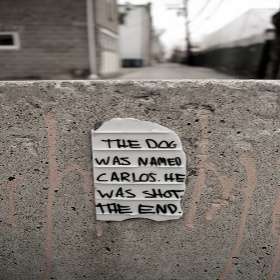 THE DOG
WAS NAMED
CARLOS. HE
WAS SHOT.
THE END.